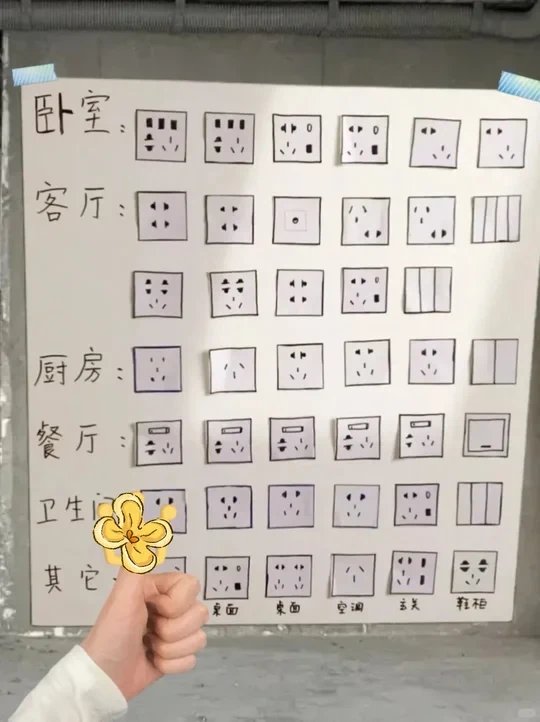 卧室:
客厅:
厨房:
餐厅:
卫生间
其它:
桌面 桌面 空调 玄关 鞋柜